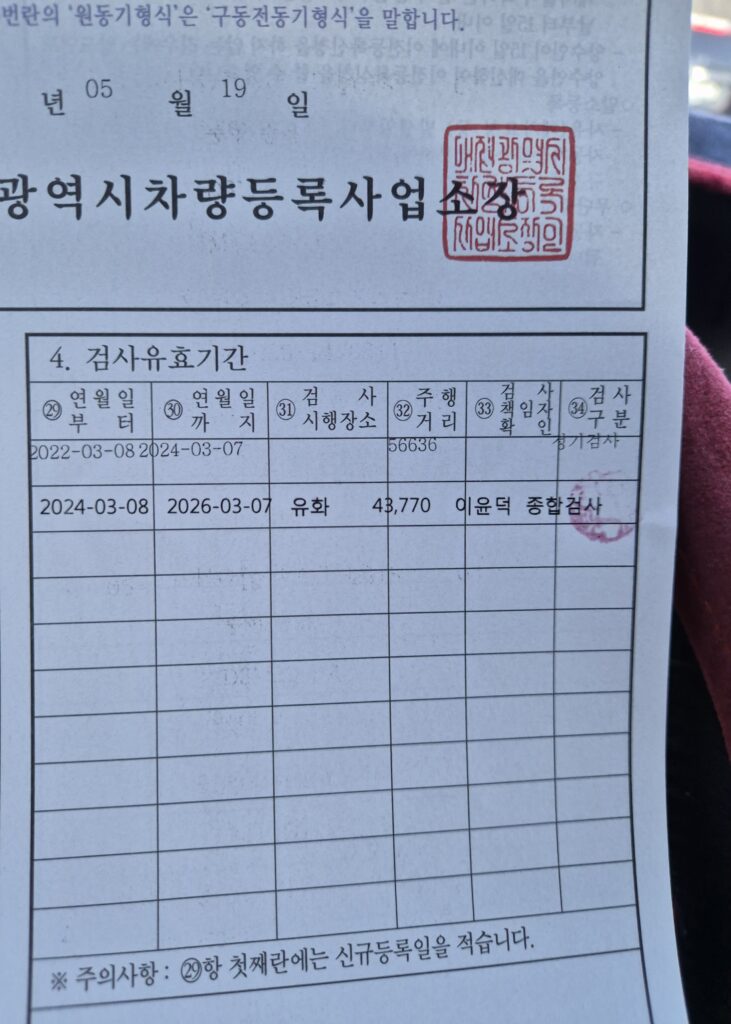 번란의 '원동기형식'은 '구동전동기형식'을 말합니다.
년 05 월 19 일
광역시차량등록사업소장
4. 검사유효기간
㉙ 연월일부터 ㉚ 연월일까지 ㉛ 검사시행장소 ㉜ 주행거리 ㉝ 검사책임자확인 ㉞ 검사구분
2022-03-08 2024-03-07 56636 정기검사
2024-03-08 2026-03-07 유화 43,770 이윤덕 종합검사
※ 주의사항 : ㉙항 첫째란에는 신규등록일을 적습니다.